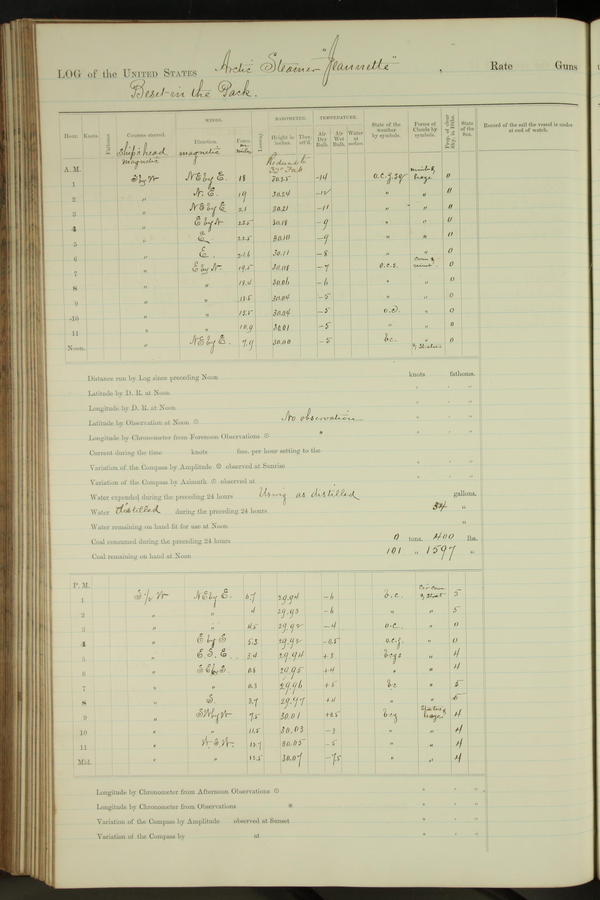 LOG of the UNITED STATES Arctic Steamer "Jeannette", Rate Guns
Beset in the Pack.
WINDS. BAROMETER. TEMPERATURE.
Hour. Knots. Fathoms. Courses steered. Direction. Force. Leeway. Height in inches. Ther. att'd. Air Dry Bulb. Air Wet Bulb. Water at surface. State of the weather by symbols. Forms of Clouds by symbols. Prop. of clear Sky, in 10ths. State of the Sea. Record of the sail the vessel is under at end of watch.
Ship's head magnetic magnetic Reduced to 32° Fah
A. M.
1 S by W NE by E. 18 30.25 -14 0
2 " N. E. 19 30.24 -12 " " 0
3 " NE by E 21 30.21 -11 " " 0
4 " E by N 22.5 30.18 -9 " " 0
5 " E 22.5 30.10 -9 " " 0
6 " E. 21.6 30.11 -8 " " 0
7 " E by N. 19.5 30.08 -7 o.c.s. 0
8 " " 18.4 30.06 -6 " " 0
9 " " 18.5 30.04 -5 " " 0
10 " " 15.5 30.04 -5 " 0
11 " " 10.9 30.01 -5 " " 0
Noon. " NE by E. 7.9 30.00 -5 b.c. " & Stratus 0
Distance run by Log since preceding Noon knots fathoms.
Latitude by D. R. at Noon
Longitude by D. R. at Noon
Latitude by Observation at Noon No observation
Longitude by Chronometer from Forenoon Observations "
Current during the time knots fms. per hour setting to the
Variation of the Compass by Amplitude observed at Sunrise
Variation of the Compass by Azimuth observed at
Water expended during the preceding 24 hours Using as distilled gallons.
Water distilled during the preceding 24 hours 54 "
Water remaining on hand fit for use at Noon "
Coal consumed during the preceding 24 hours 0 tons. 400 lbs.
Coal remaining on hand at Noon 101 " 1597 "
P. M.
1 S ½ W NE by E. 6.7 29.94 -6 b.c. 5
2 " " 4 29.93 -6 " " 5
3 " " 4.5 29.92 -4 o.c. " 0
4 " E by S 5.3 29.92 -0.5 " 0
5 " E. S. E 3.4 29.94 +3 " 4
6 " SE by E. 0.8 29.95 +4 " " 4
7 " " 0.3 29.96 +5 b.c " 5
8 " S. 3.7 29.97 +4 " " 5
9 " SW by W 7.5 30.01 +0.5 4
10 " " 11.5 30.03 -3 " " 4
11 " W. S. W. 13.7 30.05 -5 " " 4
Mid. " " 13.5 30.07 -7.5 " " 4
Longitude by Chronometer from Afternoon Observations
Longitude by Chronometer from Observations
Variation of the Compass by Amplitude observed at Sunset
Variation of the Compass by at